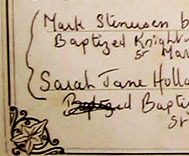 Mark Stenersen b
Baptized Knight
St Mar
Sarah Jane Holla
Baptized Bapti
St